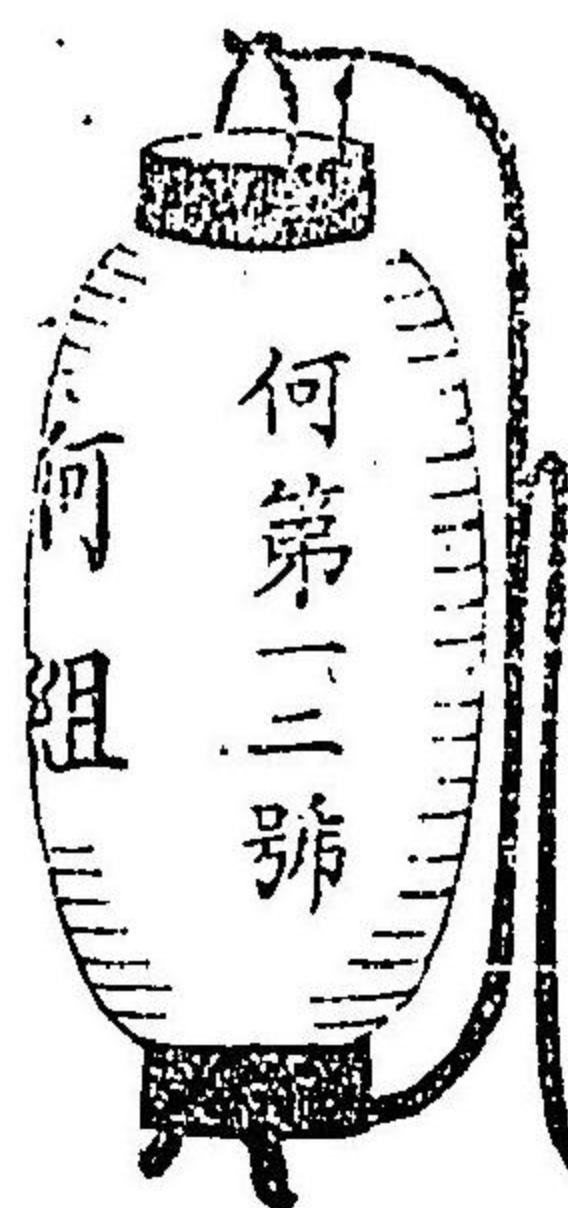 何第一二號
何組